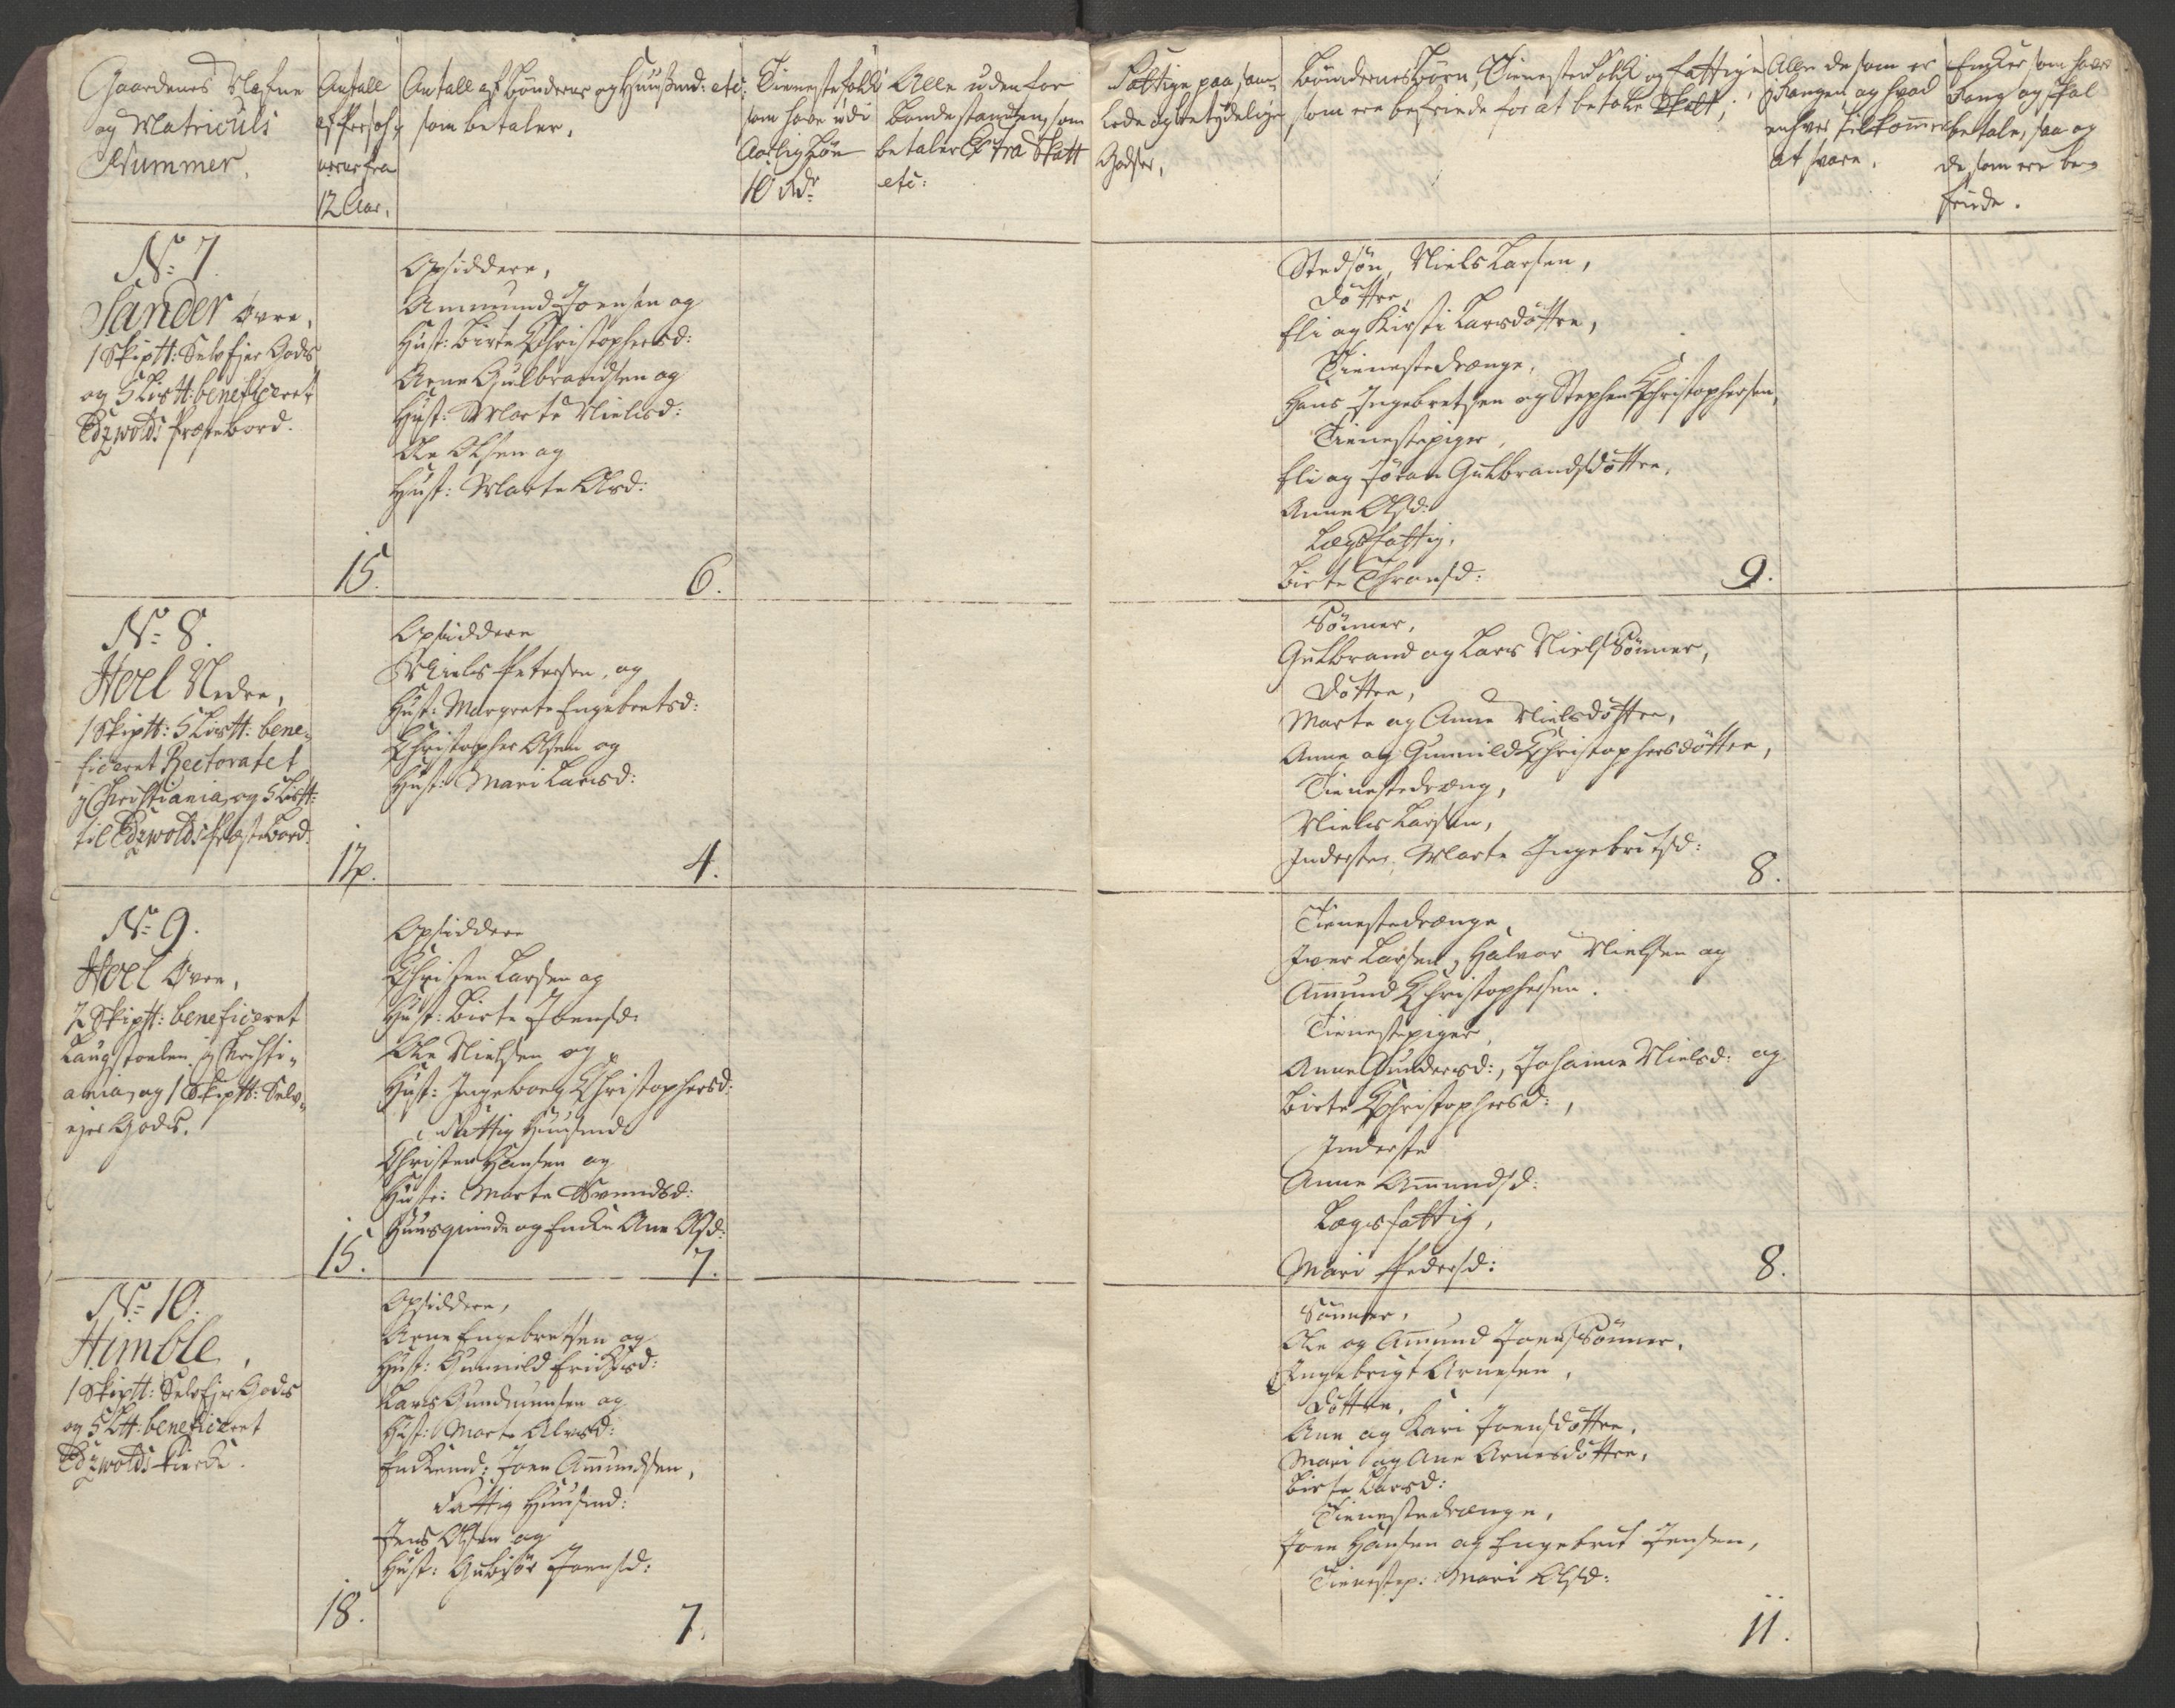 Gaardenes Nafne
og Matriculs
Nummer.
Antall
af Persoh,
fra
12 Aar.
Antall af Bønderne og Huusmd: etc:
som betaler.
Tienestefolk
som have udi
Aarlig Løn
10 Rdr
Alle uden for
bondestanden, som
betaler Extra Skatt
etc:
Fattige paa sam-
lede og betydelige
Godser,
Bøndernes Børn, Tienestefolk og fattige
som ere befriede for at betale Skatt;
Alle de som er
og hvad
enhver tilkommer
at svare.
Enker som have
og skal
betale, saa og
de som ere be-
friede.
No 7.
Sander øvre,
1 Skiptt: Selvejer Gods
og 5 Listt: beneficeret
Edzwolds Præstebord.
15.
Opsiddere,
Ammund Joensen og
Hust: Birte Christophersd:
Arne Gulbrandsen og
Hust: Marte Nielsd:
Ole Olsen og
Hust: Marte Olsd:
6.
Stedsøn, Niels Larsen,
Døttre,
Eli og Kirsti Larsdøttre,
Tienestedrænge,
Hans Ingebretsen og Stephen Christophersen,
Tienestepiger,
Eli og Jøran Gulbrandsdøttre,
Anne Olsd:
Lægsfattig,
Birte Thronsd:
9.
No 8.
Hoel Nedre,
1 Skiptt: 5 Listt: bene-
ficeret Rectoratet
i Christiania, og 5 Listt:
til Edzwolds Præstebord.
12.
Opsiddere
Niels Petersen, og
Hust: Margrete Engebretsd:
Christopher Olsen og
Hust: Mari Larsd:
4.
Sønner,
Gulbrand og Lars Niels Sønner,
Døttre,
Marte og Anne Nielsdøttre,
Anne og Gunnild Christophersdøttre,
Tienestedræng,
Niels Larsen,
Inderste, Marte Ingebritsd:
8.
No 9.
Hoel øvre,
2 Skiptt: beneficeret
Laugstoelen i Christi-
ania, og 1 Skiptt: Selv-
ejer Gods.
15.
Opsiddere
Christen Larsen og
Hust: Birte Joensd:
Ole Nielsen og
Hust: Ingeborg Christophersd:
Fattig Huusmd
Christen Hansen og
Hust: Marte Svendsd:
Huusqvinde og Enke Ane Olsd:
7.
Tienestedrænge
Iver Larsen, Halvor Nielsen og
Amund Christophersen.
Tienestepiger,
Anne Gundersd:, Johanne Nielsd: og
Birte Christophersd:,
Inderste
Anne Amundsd:
Lægsfattig,
Mari Pedersd:
8.
No 10.
Himble,
1 Skiptt: Selvejer Gods
og 5 Ltt: beneficeret
Edzwolds Kierke.
18.
Opsiddere,
Arne Engebretsen og
Hust: Gunnild Erichsd:
Lars Gudmunsen og
Hust: Marte
Enkemd: Joen Amundsen,
Fattig Huusmd:
Jens Olsen og
Hust: Gubjør Joensd:
7.
Sønner,
Ole og Amund Joens Sønner,
Ingebrigt Arnesen,
Døttre,
Ane og Kari Joensdøttre,
Mari og Ane Arnesdøttre,
Birte Larsd:
Tienestedrænge,
Joen Hansen og Engebrit Jensen,
Tienestep: Mari Olsd:
11.